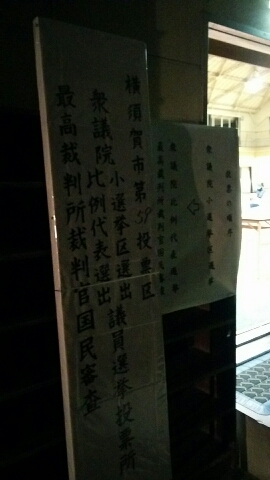 横須賀市第59投票区
衆議院小選挙区選出議員選挙投票所
比例代表選出
最高裁判所裁判官国民審査
投票の順序
衆議院小選挙区選挙
衆議院比例代表選挙
最高裁判所裁判官国民審査